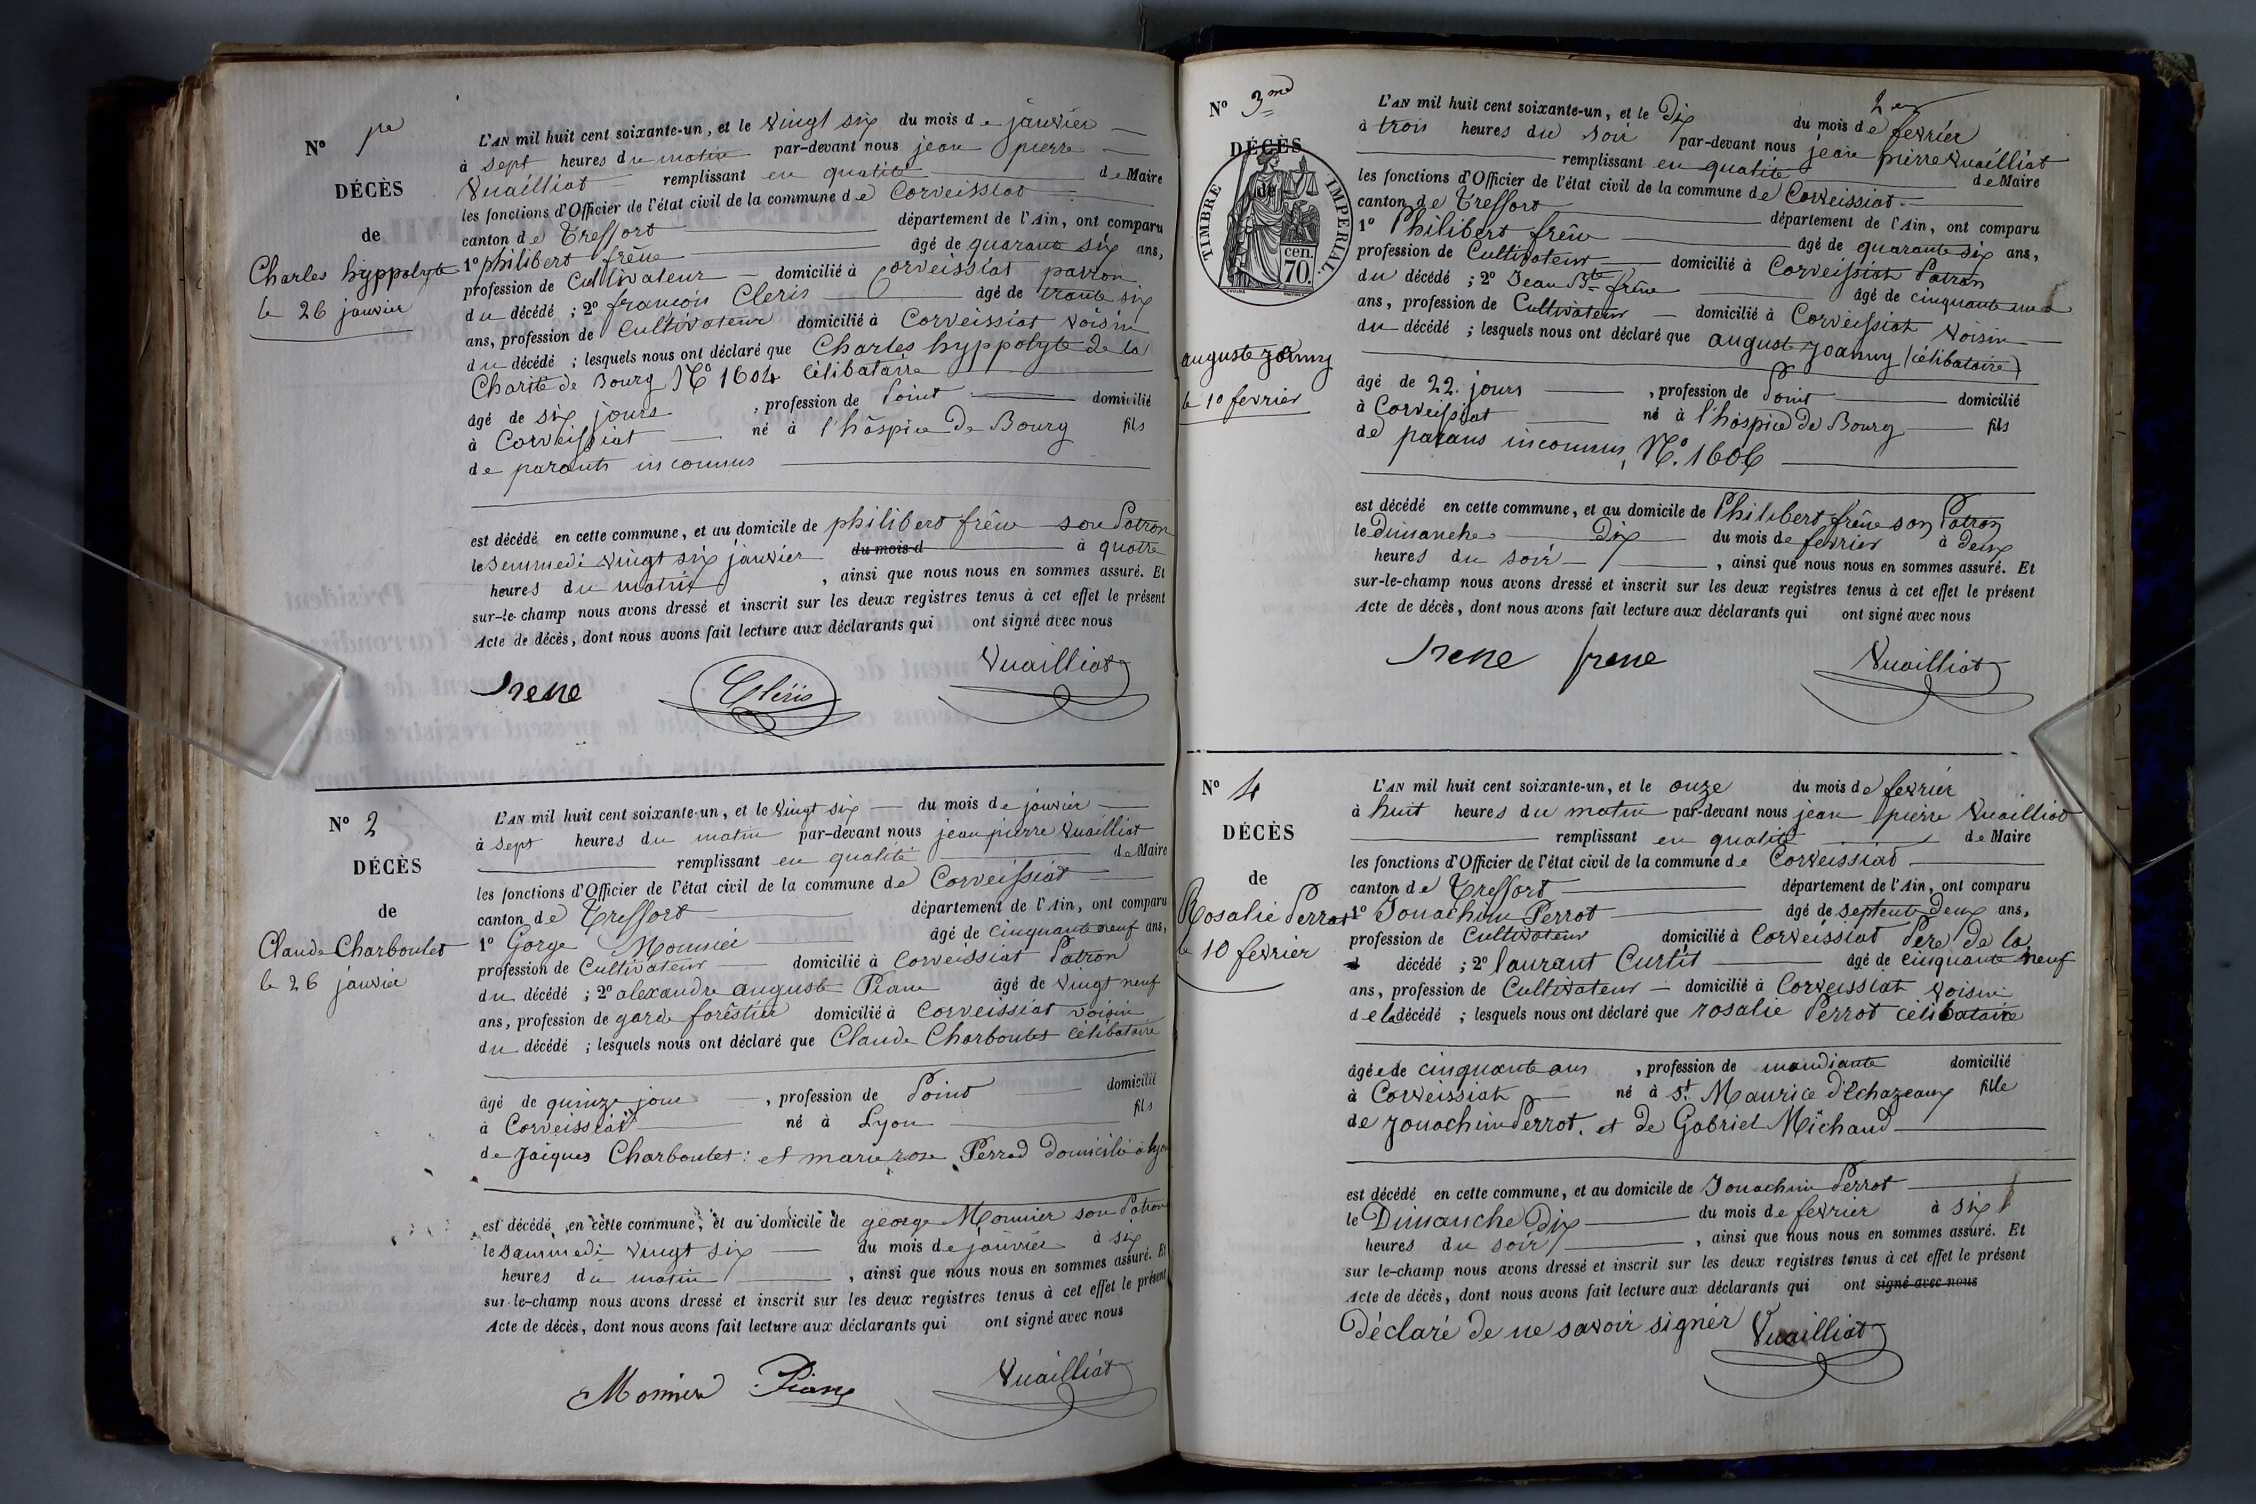 Nº 1re
DÉCÈS
de
Charles hyppolyte
le 26 janvier
L'AN mil huit cent soixante-un, et le vingt six du mois de janvier
à sept heures du matin par-devant nous jean pierre
Vuailliat remplissant en qualité de Maire
les fonctions d'Officier de l'état civil de la commune de Corveissiat
canton de Treffort département de l'Ain, ont comparu
1º philibert frêne âgé de quarante six ans,
profession de Cultivateur domicilié à Corveissiat patron
du décédé ; 2º francois Cleris âgé de trante six
ans, profession de Cultivateur domicilié à Corveissiat voisin
du décédé ; lesquels nous ont déclaré que Charles hyppolyte de la
Charité de Bourg Nº 1604 célibataire
âgé de six jours , profession de Point domicilié
à Corveissiat né à l'hospice De Bourg fils
de parants inconnus
est décédé en cette commune, et au domicile de philibert frêne son Patron
le Semmedi vingt six janvier du mois d à quatre
heures du matin , ainsi que nous nous en sommes assuré. Et
sur-le-champ nous avons dressé et inscrit sur les deux registres tenus à cet effet le présent
Acte de décès, dont nous avons fait lecture aux déclarants qui ont signé avec nous
frene Cléris Vuailliat
Nº 2
DÉCÈS
de
Claude Charboulet
le 26 janvier
L'AN mil huit cent soixante-un, et le vingt six du mois de janvier
à sept heures du matin par-devant nous jean pierre Vuailliat
remplissant en qualité de Maire
les fonctions d'Officier de l'état civil de la commune de Corveissiat
canton de Treffort département de l'Ain, ont comparu
1º Gorge Mounier âgé de cinquante neuf ans,
profession de Cultivateur domicilié à Corveissiat Patron
du décédé ; 2º alexandre auguste Piane âgé de vingt neuf
ans, profession de garde forêstier domicilié à Corveissiat voisin
du décédé ; lesquels nous ont déclaré que Claude Charboulet célibataire
âgé de quinze jour , profession de Point domicilié
à Corveissiat né à Lyon fils
de Jaiques Charboulet : et marie rose Perrad Domicilié à lyon
est décédé en cette commune, et au domicile de george Mounier son Patron
le Sammedi vingt six du mois de janvier à six
heures du matin , ainsi que nous nous en sommes assuré. Et
sur-le-champ nous avons dressé et inscrit sur les deux registres tenus à cet effet le présent
Acte de décès, dont nous avons fait lecture aux déclarants qui ont signé avec nous
Monnier Piane Vuailliat
Nº 3me
DÉCÈS
de
TIMBRE IMPÉRIAL.
cen.
70.
auguste joanny
le 10 fevrier
L'AN mil huit cent soixante-un, et le Dix du mois de fevrier
à trois heures du soir par-devant nous jean pierre Vuailliat
remplissant en qualité de Maire
les fonctions d'Officier de l'état civil de la commune de Corveissiat
canton de Treffort département de l'Ain, ont comparu
1º Philibert frêne âgé de quarante six ans,
profession de Cultivateur domicilié à Corveissiat Patron
du décédé ; 2º Jean Bte frêne âgé de cinquante un
ans, profession de Cultivateur domicilié à Corveissiat voisin
du décédé ; lesquels nous ont déclaré que auguste joanny (célibataire)
âgé de 22 jours , profession de Point domicilié
à Corveissiat né à l'hospice De Bourg fils
de parans inconnus, Nº 1606
est décédé en cette commune, et au domicile de Philibert frêne son Patron
le Dimanche Dix du mois de fevrier à deux
heures du soir , ainsi que nous nous en sommes assuré. Et
sur-le-champ nous avons dressé et inscrit sur les deux registres tenus à cet effet le présent
Acte de décès, dont nous avons fait lecture aux déclarants qui ont signé avec nous
frene frene Vuailliat
Nº 4
DÉCÈS
de
Rosalie Perrot
le 10 fevrier
L'AN mil huit cent soixante-un, et le onze du mois de fevrier
à huit heures du matin par-devant nous jean pierre Vuailliat
remplissant en qualité de Maire
les fonctions d'Officier de l'état civil de la commune de Corveissiat
canton de Treffort département de l'Ain, ont comparu
1º Jouachim Perrot âgé de septente deux ans,
profession de Cultivateur domicilié à Corveissiat Pere de la
décédé ; 2º laurant Curtit âgé de cinquante neuf
ans, profession de Cultivateur domicilié à Corveissiat voisin
de la décédé ; lesquels nous ont déclaré que rosalie Perrot célibataire
âgée de cinquante ans , profession de mandiante domicilié
à Corveissiat né à St Maurice d'Echazeaux fille
de jouachim Perrot, et de Gabriel Michaud
est décédé en cette commune, et au domicile de Jouachim Perrot
le Dimanche Dix du mois de fevrier à six
heures du soir , ainsi que nous nous en sommes assuré. Et
sur le-champ nous avons dressé et inscrit sur les deux registres tenus à cet effet le présent
Acte de décès, dont nous avons fait lecture aux déclarants qui ont signé avec nous
Déclaré de ne savoir signer Vuailliat